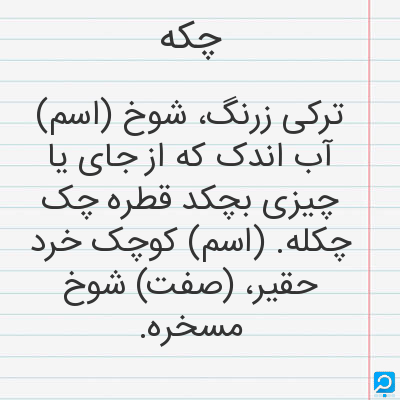 چکه
ترکی زرنگ، شوخ (اسم)
آب اندک که از جای یا
چیزی بچکد قطره چک
چکله. (اسم) کوچک خرد
حقیر، (صفت) شوخ
مسخره.